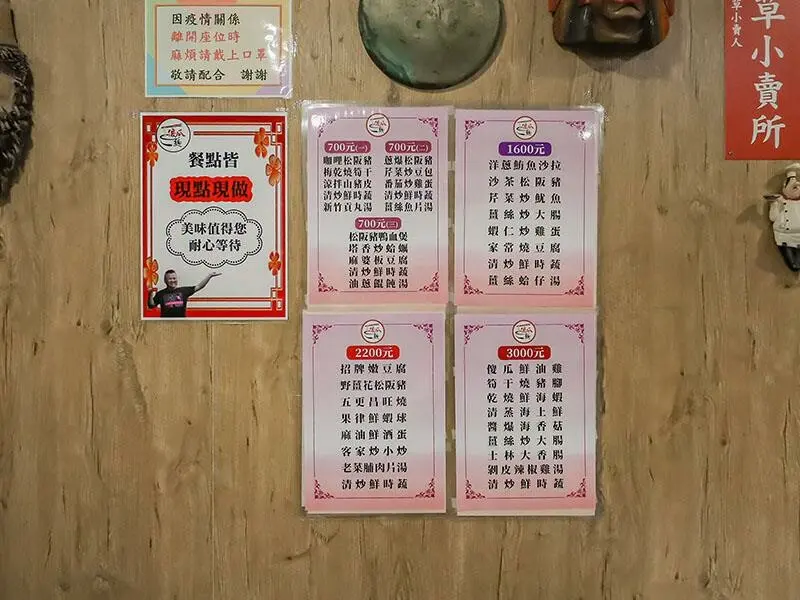 因疫情關係
離開座位時
麻煩請戴上口罩
敬請配合 謝謝
草小賣所
草小賣人
傻瓜
麵
餐點皆
現點現做
美味值得您
耐心等待
700元(一)
咖哩松阪豬
梅乾燒筍干
涼拌山豬皮
清炒鮮時蔬
新竹貢丸湯
700元(二)
蔥爆松阪豬
芹菜炒豆包
番茄炒雞蛋
清炒鮮時蔬
薑絲魚片湯
700元(三)
松阪豬鴨血煲
塔香炒蛤蠣
麻婆板豆腐
清炒鮮時蔬
油蔥餛飩湯
1600元
洋蔥鮪魚沙拉
沙茶松阪豬
芹菜炒魷魚
薑絲炒大腸
蝦仁炒雞蛋
家常燒豆腐
清炒鮮時蔬
薑絲蛤仔湯
2200元
招牌嫩豆腐
野薑花松阪豬
五更昌旺燒
果律鮮蝦球
麻油鮮酒蛋
客家炒小炒
老菜脯肉片湯
清炒鮮時蔬
3000元
傻瓜鮮油雞
筍干燒豬腳
乾燒鮮海蝦
清蒸海上鮮
醬爆海香菇
薑絲炒大腸
士林大香腸
剝皮辣椒雞湯
清炒鮮時蔬